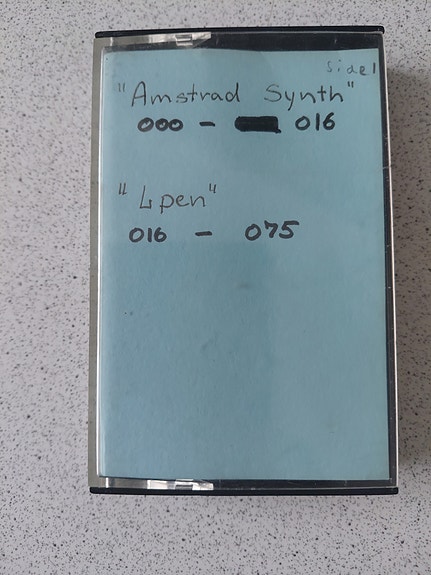 Side 1
"Amstrad Synth"
000 - 016
"Lpen"
016 - 075